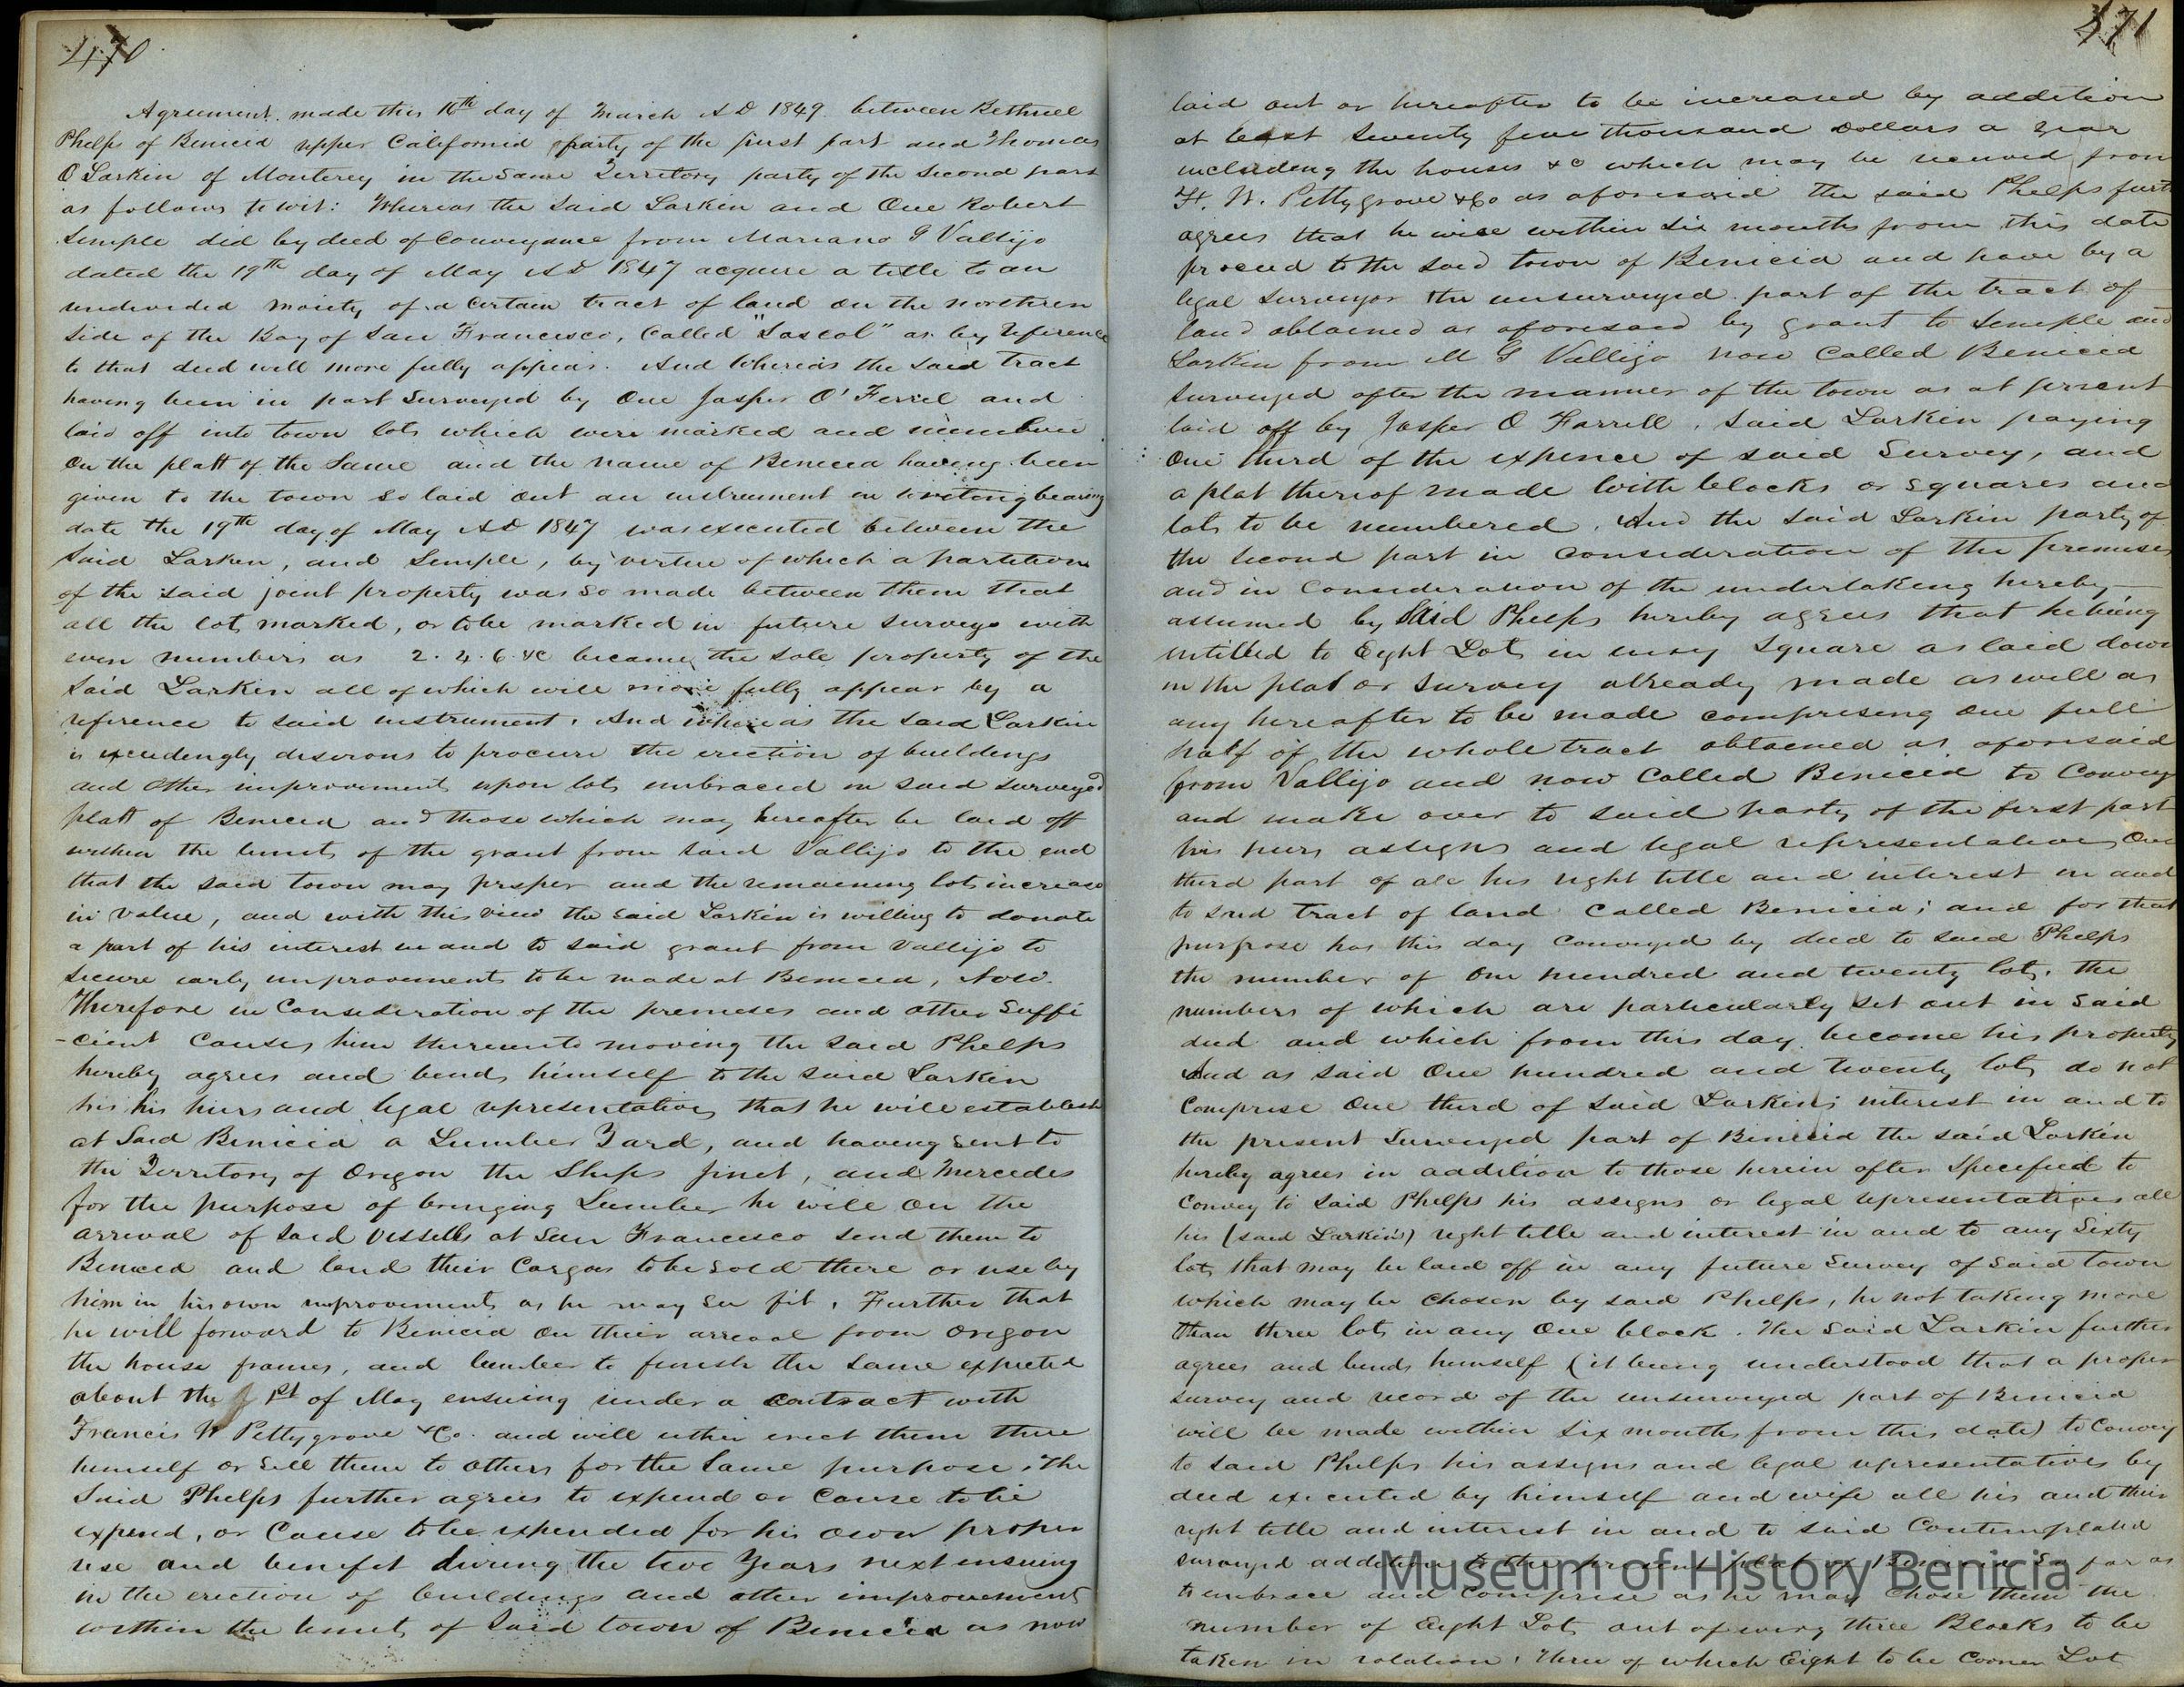 470
Agreement made this 16th day of March A D 1849 between Bethuel
Phelps of Benicia upper California party of the first part and Thomas
O Larkin of Monterey in the Same Territory party of the Second part
as follows to wit: Whereas the Said Larkin and One Robert
Semple did by deed of Conveyance from Mariano G Vallejo
dated the 19th day of May A D 1847 acquire a title to an
undivided moiety of a Certain tract of land on the northern
Side of the Bay of San Francisco, Called "Soscol" as by reference
to that deed will more fully appear. And Whereas the Said tract
having been in part Surveyed by One Jasper O'Ferrel and
laid off into town lots which were marked and numbered
On the platt of the Same and the name of Benicia having been
given to the town So laid out an instrument in writing bearing
date the 19th day of May A D 1847 was executed between the
Said Larken, and Semple, by virtue of which a partition
of the said joint property was So made between them that
all the lots marked, or to be marked in future surveys with
even numbers as 2. 4. 6. &c became the Sole property of the
Said Larkin all of which will more fully appear by a
reference to said instrument. And whereas the said Larkin
is exceedingly desirous to procure the erection of buildings
and Other improvements upon lots embraced in Said Surveyed
platt of Benicia and those which may hereafter be laid off
within the limits of the grant from Said Vallejo to the end
that the said town may prosper and the remaining lots increase
in value, and with this view the said Larkin is willing to donate
a part of his interest in and to said grant from Vallejo to
Secure early improvements to be made at Benicia, Now
Therefore in Consideration of the premises and other Suffi
-cient Causes him thereunto moving the Said Phelps
hereby agrees and bends himself to the Said Larkin
his his heirs and legal representatives that he will establish
at Said Benicia a Lumber Yard, and having sent to
the Territory of Oregon the Ships Janet, and Mercedes
for the purpose of bringing Lumber he will On the
arrival of Said Vessells at San Francisco send them to
Benicia and land their Cargos to be Sold there or use by
him in his own improvements as he may see fit, Further that
he will forward to Benicia On their arrival from Oregon
the house frames, and lumber to finish the Same expected
about the 1st of May ensuing under a contract with
Francis W Pettygrove &Co. and will either erect them there
himself or Sell them to Others for the Same purpose, the
Said Phelps further agrees to expend or Cause to be
expend, or Cause to be expended for his own proper
use and benefit during the two Years next ensuing
in the erection of buildings and other improvements
within the limits of Said town of Benicia as now
471
laid out or hereafter to be increased by addition
at least Seventy five thousand Dollars a Year
including the houses &c which may be received from
F. W. Pettygrove &Co as aforesaid the said Phelps
agrees that he will within Six months from this date
proceed to the Said town of Benicia and have by a
legal Surveyor the unsurveyed part of the tract of
land obtained as aforesaid by grant to Semple and
Larkin from M G Vallejo now Called Benicia
Surveyed after the manner of the town as at present
laid off by Jasper O Farrell, Said Larkin paying
One third of the expence of said Survey, and
a plat thereof made With blocks or Squares and
lots to be numbered. And the Said Larkin party of
the Second part in Consideration of the premises
and in Consideration of the undertaking hereby
assumed by Said Phelps hereby agrees that he being
entitled to Eight Lots in every Square as laid down
in the plat or Survey already made as well as
any hereafter to be made comprising One full
half of the whole tract obtained as aforesaid
from Vallejo and now Called Benicia to Convey
and make over to said party of the first part
his heirs assigns and legal representatives One
third part of all his right title and interest in and
to Said tract of land Called Benicia; and for that
purpose has this day Conveyed by deed to Said Phelps
the number of One hundred and twenty lots, the
numbers of which are particularly set out in said
deed and which from this day become his property
And as Said One hundred and Twenty lots do not
Comprise One third of Said Larkins interest in and to
the present Surveyed part of Benicia the said Larkin
hereby agrees in addition to those herein after Specified to
Convey to Said Phelps his assigns or legal representatives all
his (said Larkin's) right title and interest in and to any Sixty
lots that may be laid off in any future Survey of Said town
which may be Chosen by said Phelps, he not taking more
than three lots in any One block. The Said Larkin further
agrees and bends himself (it being understood that a proper
Survey and record of the unsurveyed part of Benicia
will be made within Six months from this date) to Convey
to Said Phelps his assigns and legal representatives by
deed executed by himself and wife all his and their
right title and interest in and to Said Contemplated
surveyed addition to the present plat of Benicia So far as
to embrace and Comprise as he may Chose them the
number of Eight Lots out of every three Blocks to be
taken in rotation, three of which Eight to be Corner Lots
Museum of History Benicia